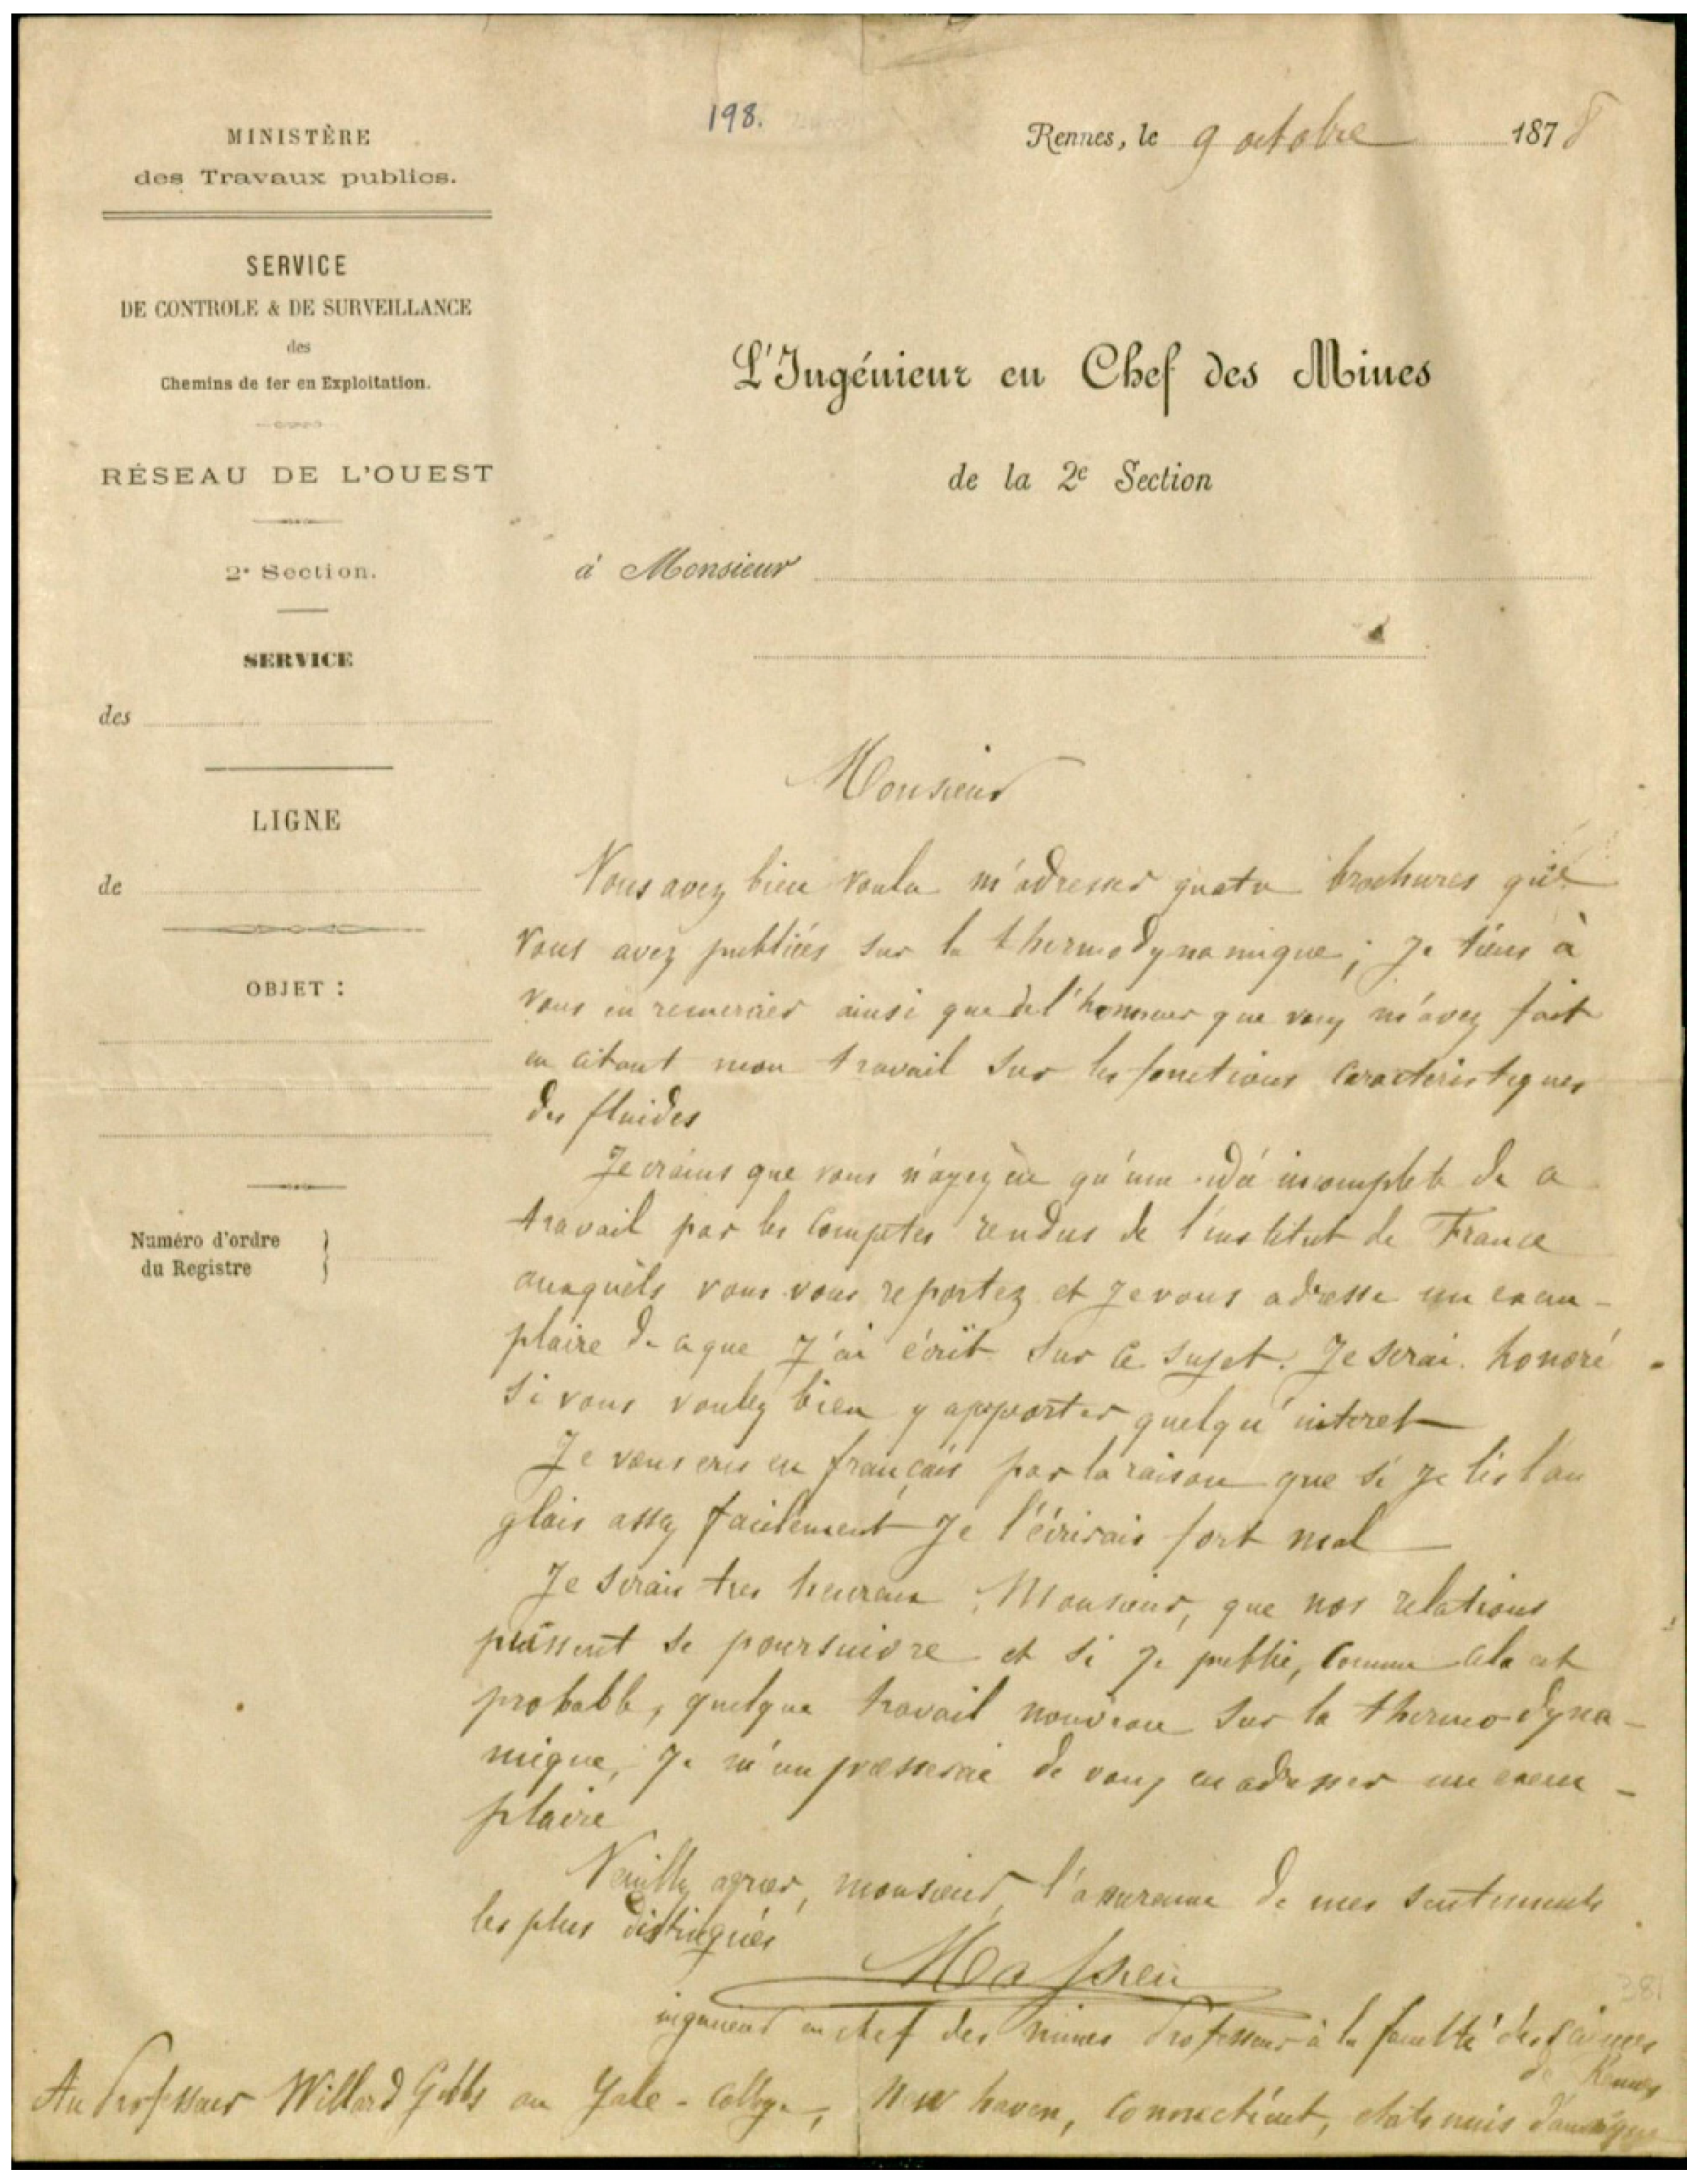 198.
Rennes, le 9 octobre 1878
MINISTÈRE
des Travaux publics.
SERVICE
DE CONTROLE & DE SURVEILLANCE
des
Chemins de fer en Exploitation.
RÉSEAU DE L'OUEST
2e Section.
SERVICE
des
LIGNE
de
OBJET :
Numéro d'ordre
du Registre
L'Ingénieur en Chef des Mines
de la 2e Section
à Monsieur
Monsieur
Vous avez bien voulu m'adresser quatre brochures que
vous avez publiées sur la thermodynamique; je tiens à
vous en remercier ainsi que de l'honneur que vous m'avez fait
en citant mon travail sur les fonctions caracteristiques
des fluides
Je crains que vous n'ayez eu qu'une idée incomplete de ce
travail par les comptes rendus de l'institut de France
auxquels vous vous reportez et je vous adresse un exem-
plaire de ce que j'ai écrit sur ce sujet. Je serai honoré
si vous voulez bien y apporter quelqu'interet
Je vous ecris en français par la raison que si je lis l'an
glais assez facilement je l'écrirais fort mal
Je serais tres heureux, Monsieur, que nos relations
puissent se poursuivre et si je publie, comme cela est
probable, quelque travail nouveau sur la thermo-dyna-
mique, je m'empresserai de vous en adresser un exem-
plaire
Veuillez agréer, monsieur, l'assurance de mes sentiments
les plus distingués
Massieu
ingenieur en chef des mines Professeur à la faculté des sciences
de Rennes
Au Professeur Willard Gibbs au Yale-College, New haven, Connecticut, etats unis d'amerique
381